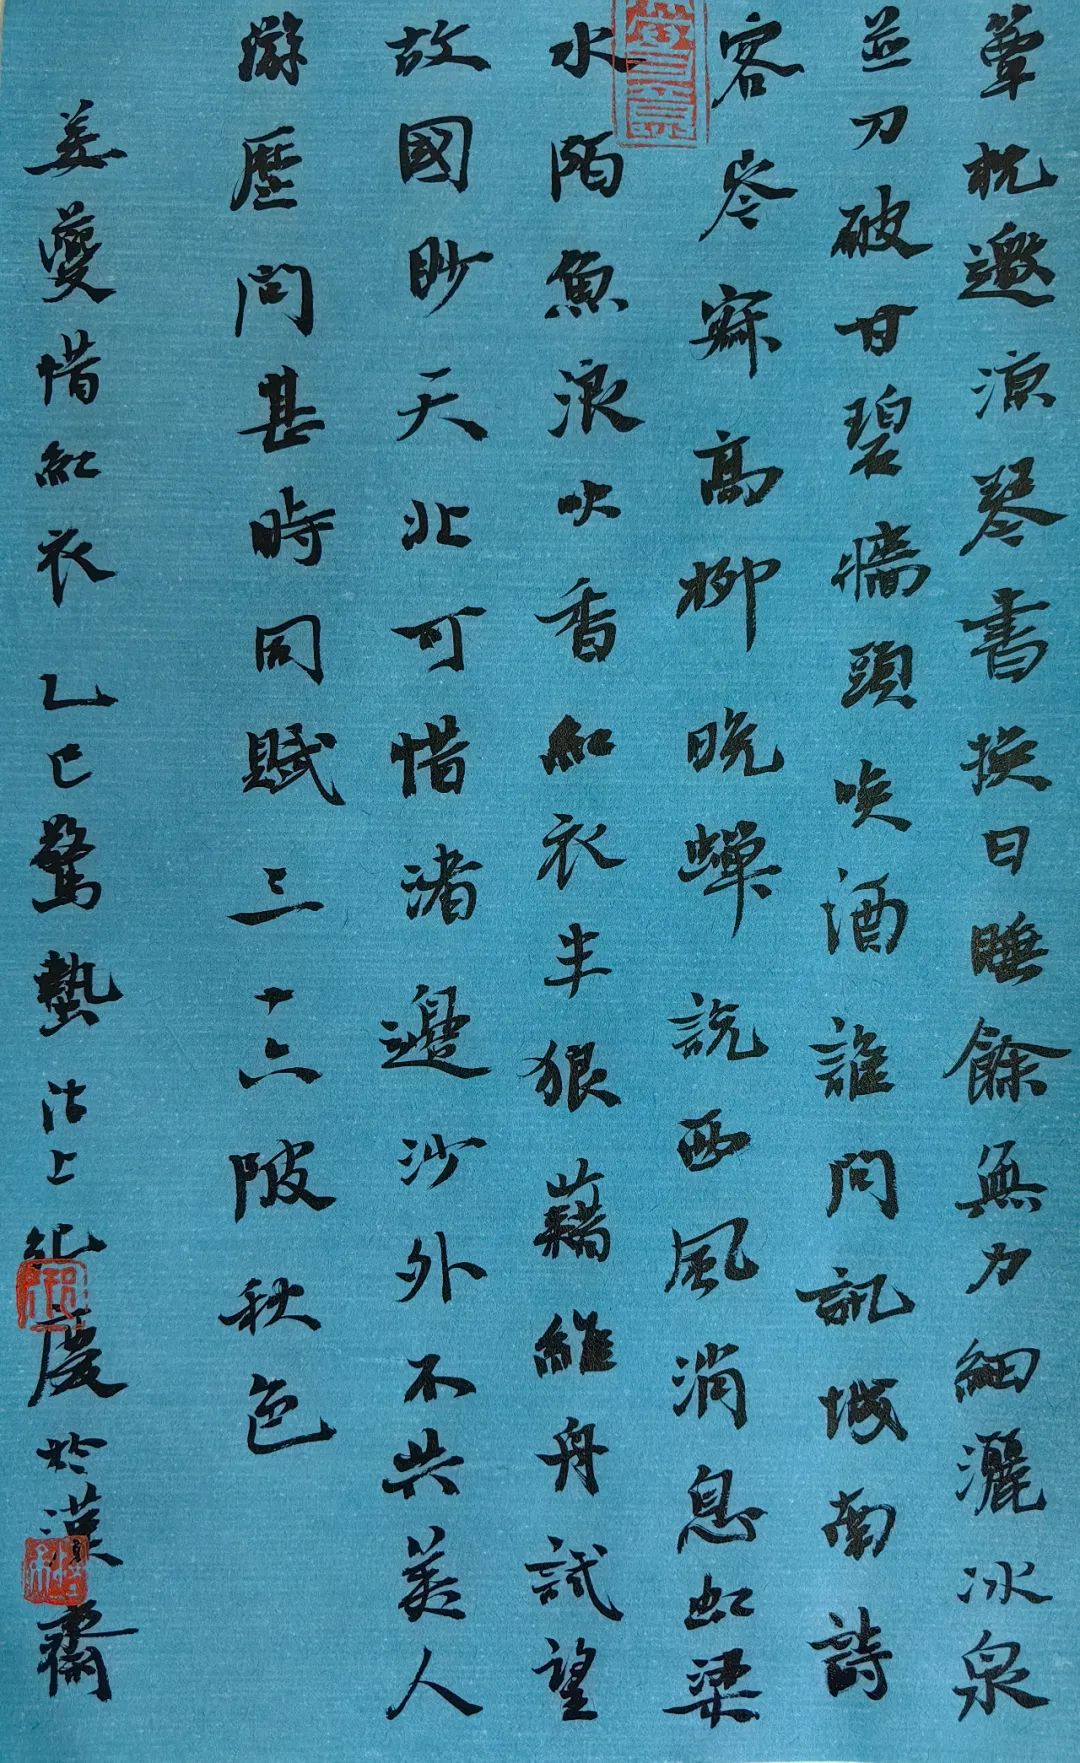 簟枕邀涼琴書換日睡餘無力細灑冰泉
並刀破甘碧牆頭喚酒誰問訊城南詩
客岑寂高柳晚蟬說西風消息虹梁
水陌魚浪吹香紅衣半狼藉維舟試望
故國眇天北可惜渚邊沙外不共美人
游歷問甚時同賦三十六陂秋色
姜夔惜紅衣 乙巳驚蟄沽上紀慶於漢齋